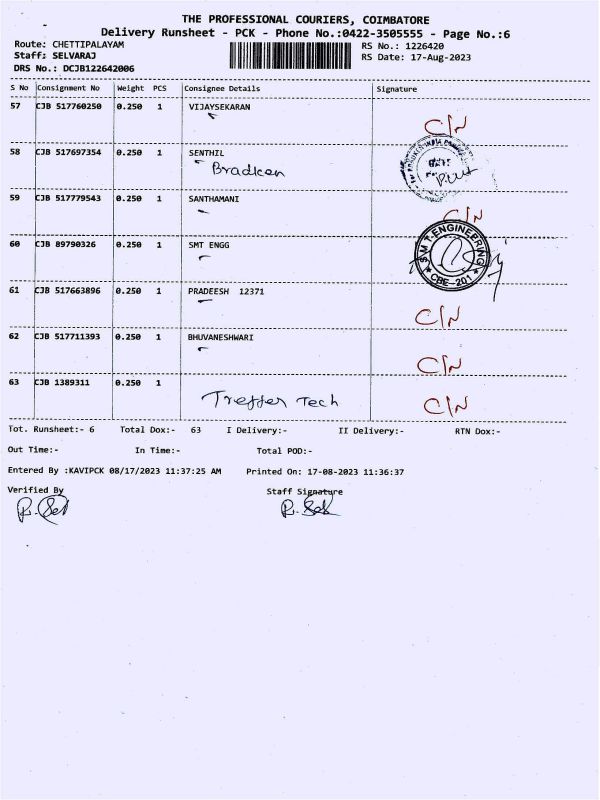 THE PROFESSIONAL COURIERS, COIMBATORE
Delivery Runsheet - PCK - Phone No.:0422-3505555 - Page No.:6
Route: CHETTIPALAYAM RS No.: 1226420
Staff: SELVARAJ RS Date: 17-Aug-2023
DRS No.: DCJB122642006
S No Consignment No Weight PCS Consignee Details Signature
57 CJB 517760250 0.250 1 VIJAYSEKARAN C/N
58 CJB 517697354 0.250 1 SENTHIL
Bradken
59 CJB 517779543 0.250 1 SANTHAMANI C/N
60 CJB 89790326 0.250 1 SMT ENGG
S.M.T. ENGINEERING
CBE-201
61 CJB 517663896 0.250 1 PRADEESH 12371 C/N
62 CJB 517711393 0.250 1 BHUVANESHWARI C/N
63 CJB 1389311 0.250 1 Treffer Tech C/N
Tot. Runsheet:- 6 Total Dox:- 63 I Delivery:- II Delivery:- RTN Dox:-
Out Time:- In Time:- Total POD:-
Entered By :KAVIPCK 08/17/2023 11:37:25 AM Printed On: 17-08-2023 11:36:37
Verified By Staff Signature